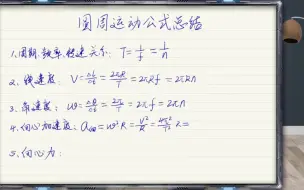 圆周运动公式总结
1.周期、频率、转速关系: T=1/f=1/n
2.线速度: V=ΔL/Δt=2πR/T=2πRf=2πRn
3.角速度: ω=Δθ/Δt=2π/T=2πf=2πn
4.向心加速度: a向=ω²R=V²/R=4π²/T² R=
5.向心力: